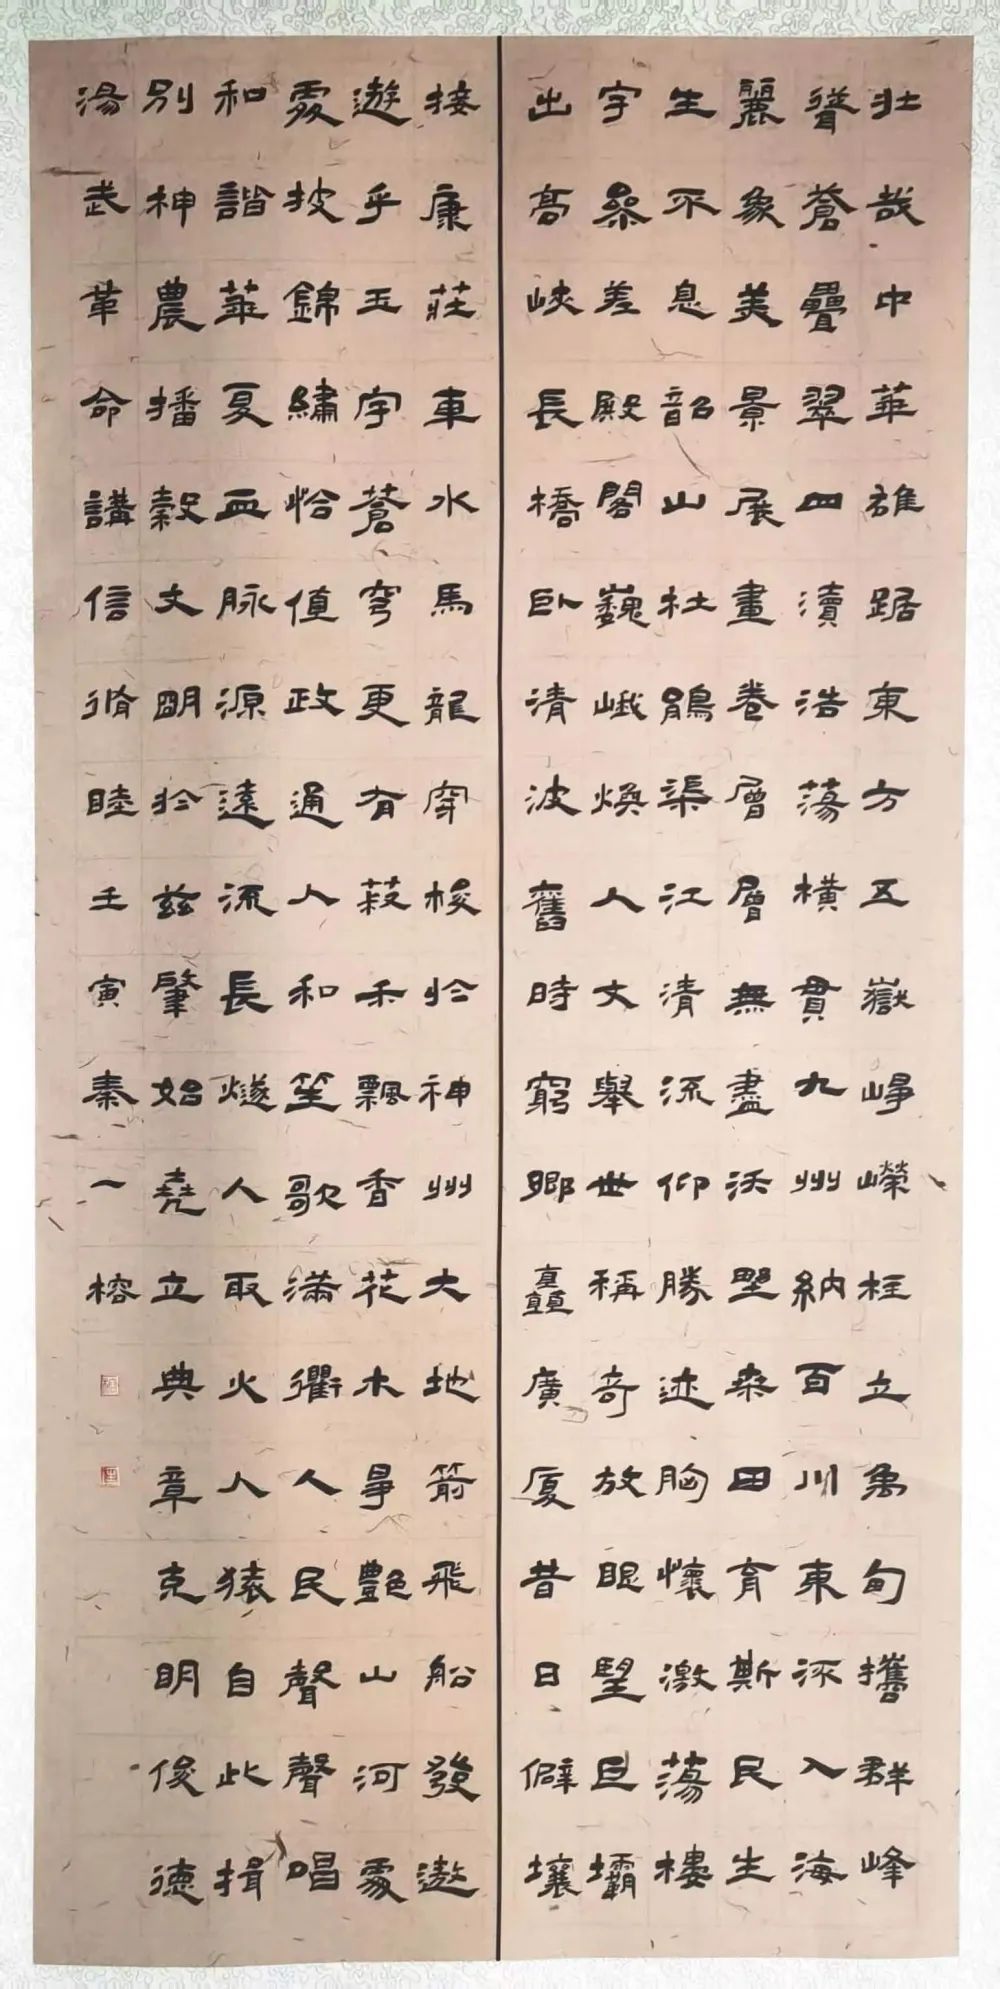 壯哉中華雄踞東方五嶽崢嶸柱立禹甸攜群峰
聳蒼疊翠四瀆浩蕩橫貫九州納百川東流入海
麗象美景展畫卷層層無盡沃野桑田育斯民生
生不息韶山杜鵑渠江清流仰勝迹胸懷激蕩樓
宇參差殿閣巍峨煥人文舉世稱奇放眼望巨壩
出高峽長橋臥清波舊時窮鄉矗廣廈昔日僻壤
接康莊車水馬龍穿梭於神州大地箭飛船發遨
遊乎玉宇蒼穹更有菽禾飄香花木爭艷山河處
處披錦繡恰值政通人和笙歌滿衢人民聲聲唱
和諧華夏血脉源遠流長燧人取火人猿自此揖
別神農播穀文明於茲肇始堯立典章克明俊德
湯武革命講信脩睦壬寅秦一榕